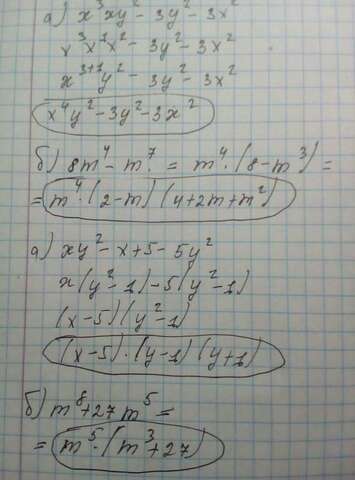 а) x³xy² - 3y² - 3x²
x³x¹x² - 3y² - 3x²
x³⁺¹y² - 3y² - 3x²
x⁴y² - 3y² - 3x²
б) 8m⁴ - m⁷ = m⁴·(8 - m³) =
= m⁴·(2 - m)(4 + 2m + m²)
а) xy² - x + 5 - 5y²
x(y² - 1) - 5(y² - 1)
(x - 5)(y² - 1)
(x - 5)·(y - 1)(y + 1)
б) m⁸ + 27m⁵ =
= m⁵·(m³ + 27)